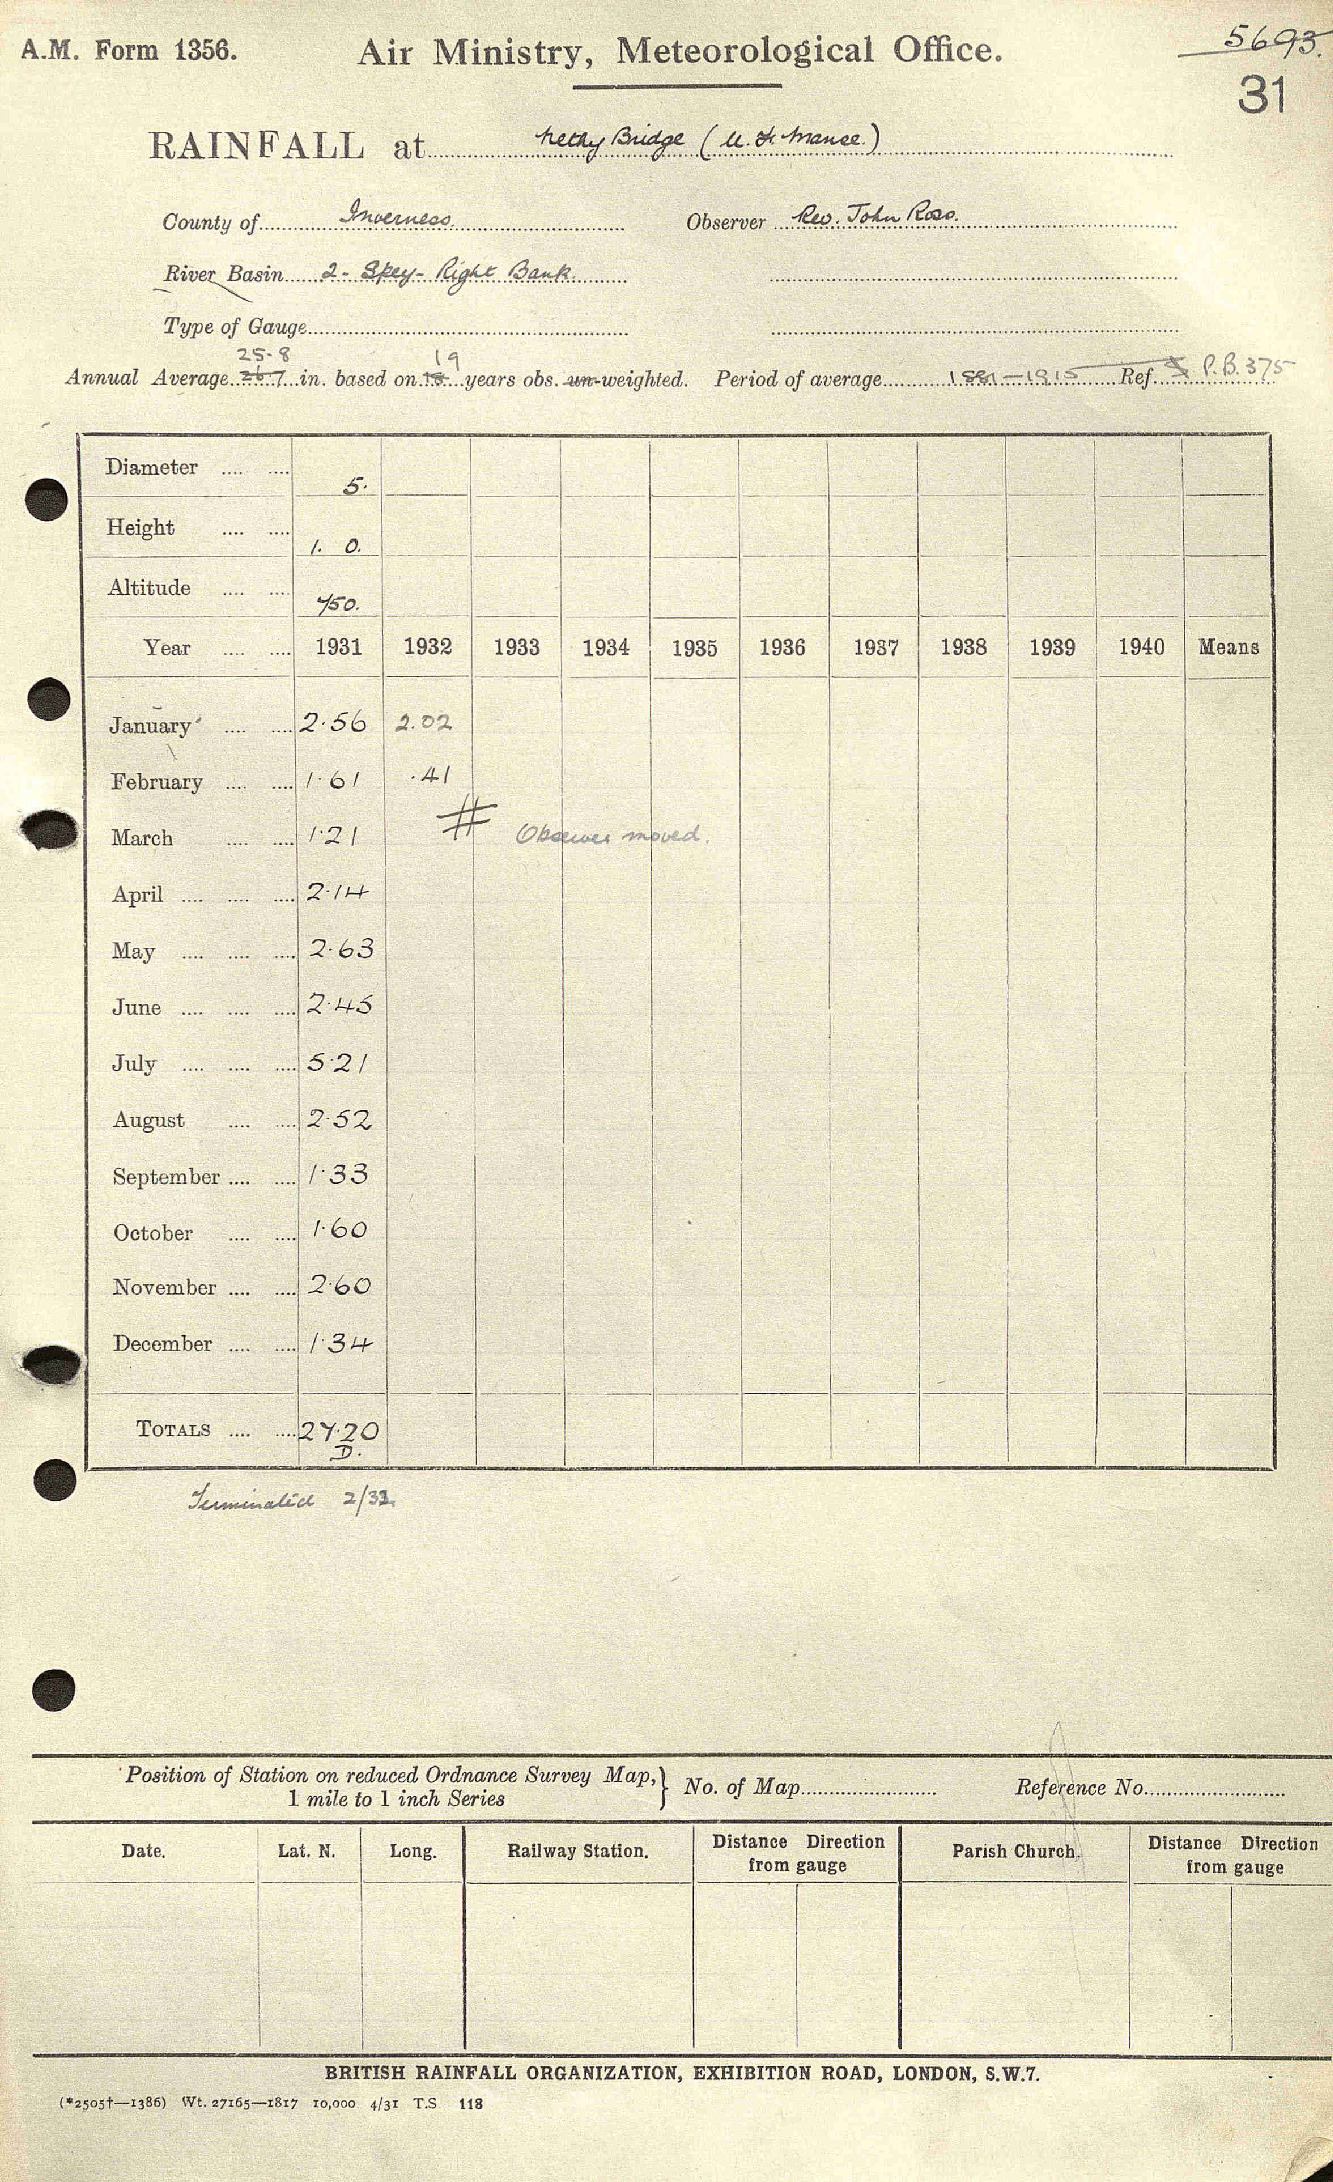 A.M. Form 1356. Air Ministry, Meteorological Office. 5693.
31
RAINFALL at Nethy Bridge (U.F. Manse.)
County of Inverness. Observer Rev. John Ross.
River Basin 2- Spey- Right Bank.
Type of Gauge
25.8 19
Annual Average 26.7 in. based on 18 years obs. un-weighted. Period of average 1881-1915 Ref. P.B. 375
Diameter 5.
Height 1. 0.
Altitude 750.
Year 1931 1932 1933 1934 1935 1936 1937 1938 1939 1940 Means
January 2.56 2.02
February 1.61 .41
March 1.21 # Observer moved.
April 2.14
May 2.63
June 2.45
July 5.21
August 2.52
September 1.33
October 1.60
November 2.60
December 1.34
TOTALS 27.20
D.
Terminated 2/32
Position of Station on reduced Ordnance Survey Map, } No. of Map Reference No.
1 mile to 1 inch Series
Date. Lat. N. Long. Railway Station. Distance Direction Parish Church. Distance Direction
from gauge from gauge
BRITISH RAINFALL ORGANIZATION, EXHIBITION ROAD, LONDON, S.W.7.
(*2505†—1386) Wt. 27165—1817 10,000 4/31 T.S 118